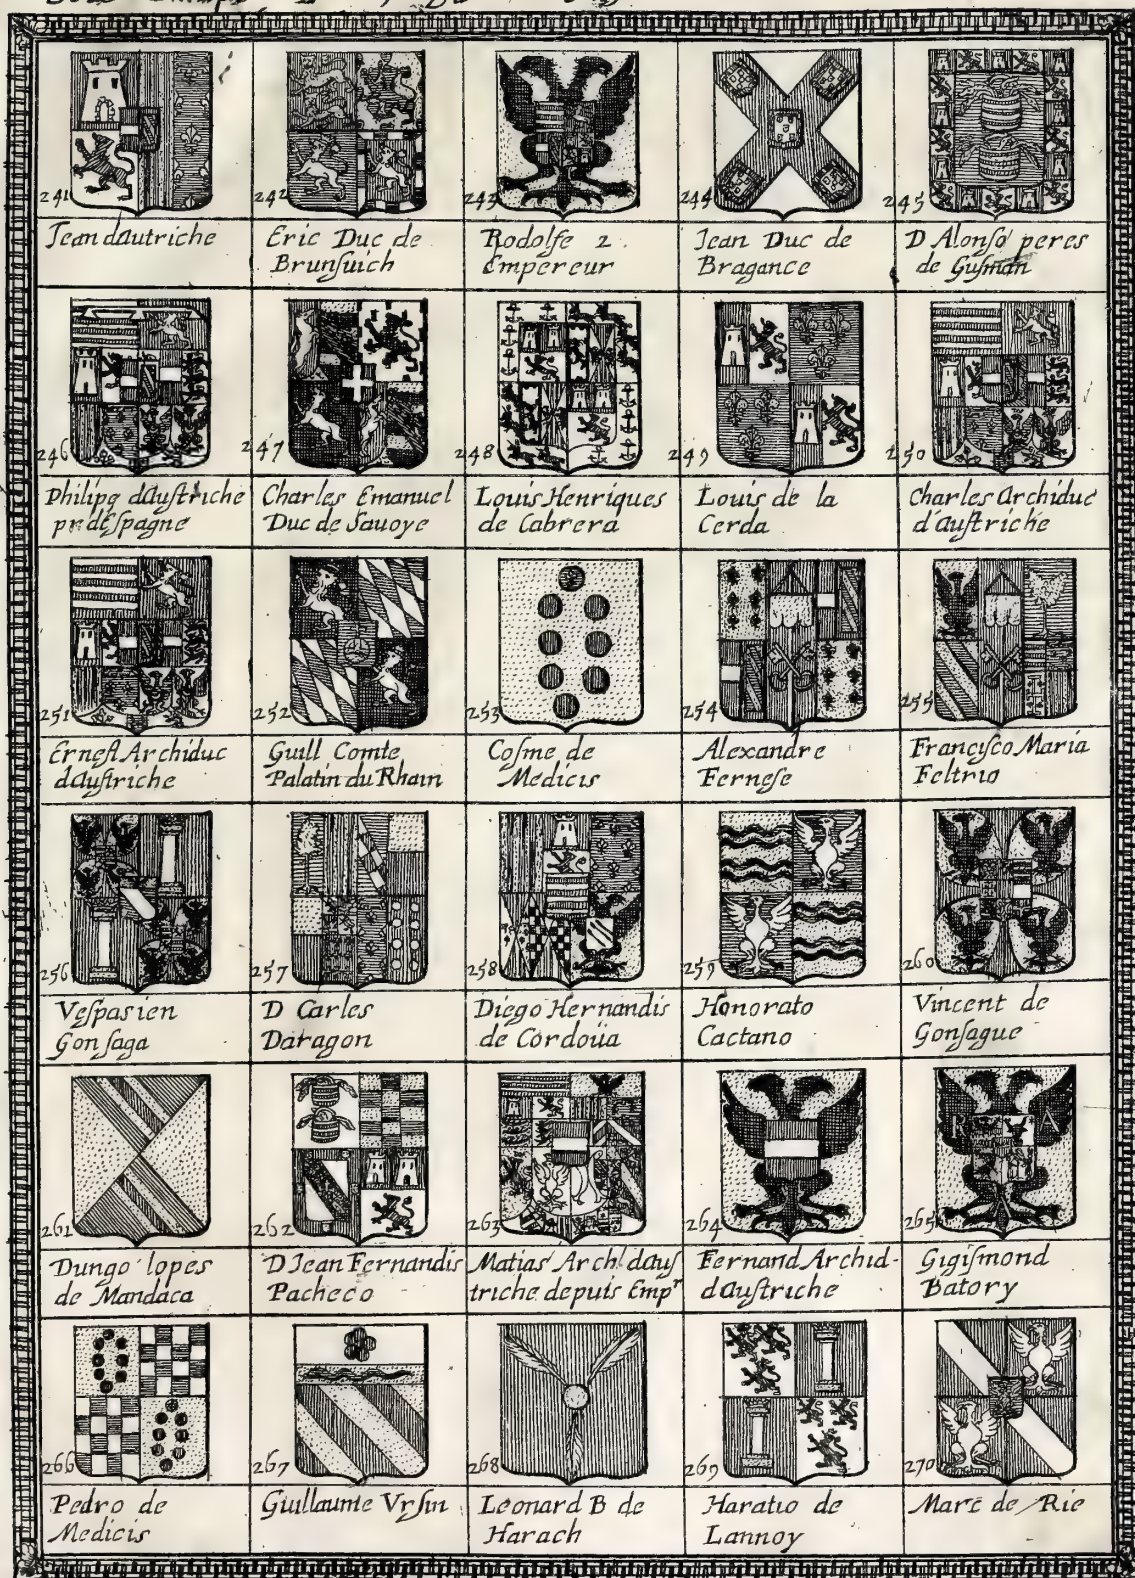 241
Jean dautriche
242
Eric Duc de
Brunsuich
243
Rodolfe 2
Empereur
244
Jean Duc de
Bragance
245
D Alonso peres
de Gusman
246
Philipe daustriche
pr despagne
247
Charles Emanuel
Duc de Sauoye
248
Louis Henriques
de Cabrera
249
Louis de la
Cerda
250
Charles Archiduc
d'austriche
251
Ernest Archiduc
daustriche
252
Guill Comte
Palatin du Rhain
253
Cosme de
Medicis
254
Alexandre
Fernese
255
Francisco Maria
Feltrio
256
Vespasien
Gonsaga
257
D Carles
Daragon
258
Diego Hernandis
de Cordoüa
259
Honorato
Cactano
260
Vincent de
Gonsague
261
Dungo lopes
de Mandaca
262
D Jean Fernandis
Pacheco
263
Matias Archl daus
triche depuis Empr
264
Fernand Archid-
daustriche
R A
265
Gigismond
Batory
266
Pedro de
Medicis
267
Guillaume Vrsin
268
Leonard B de
Harach
269
Haratio de
Lannoy
270
Marc de Rie